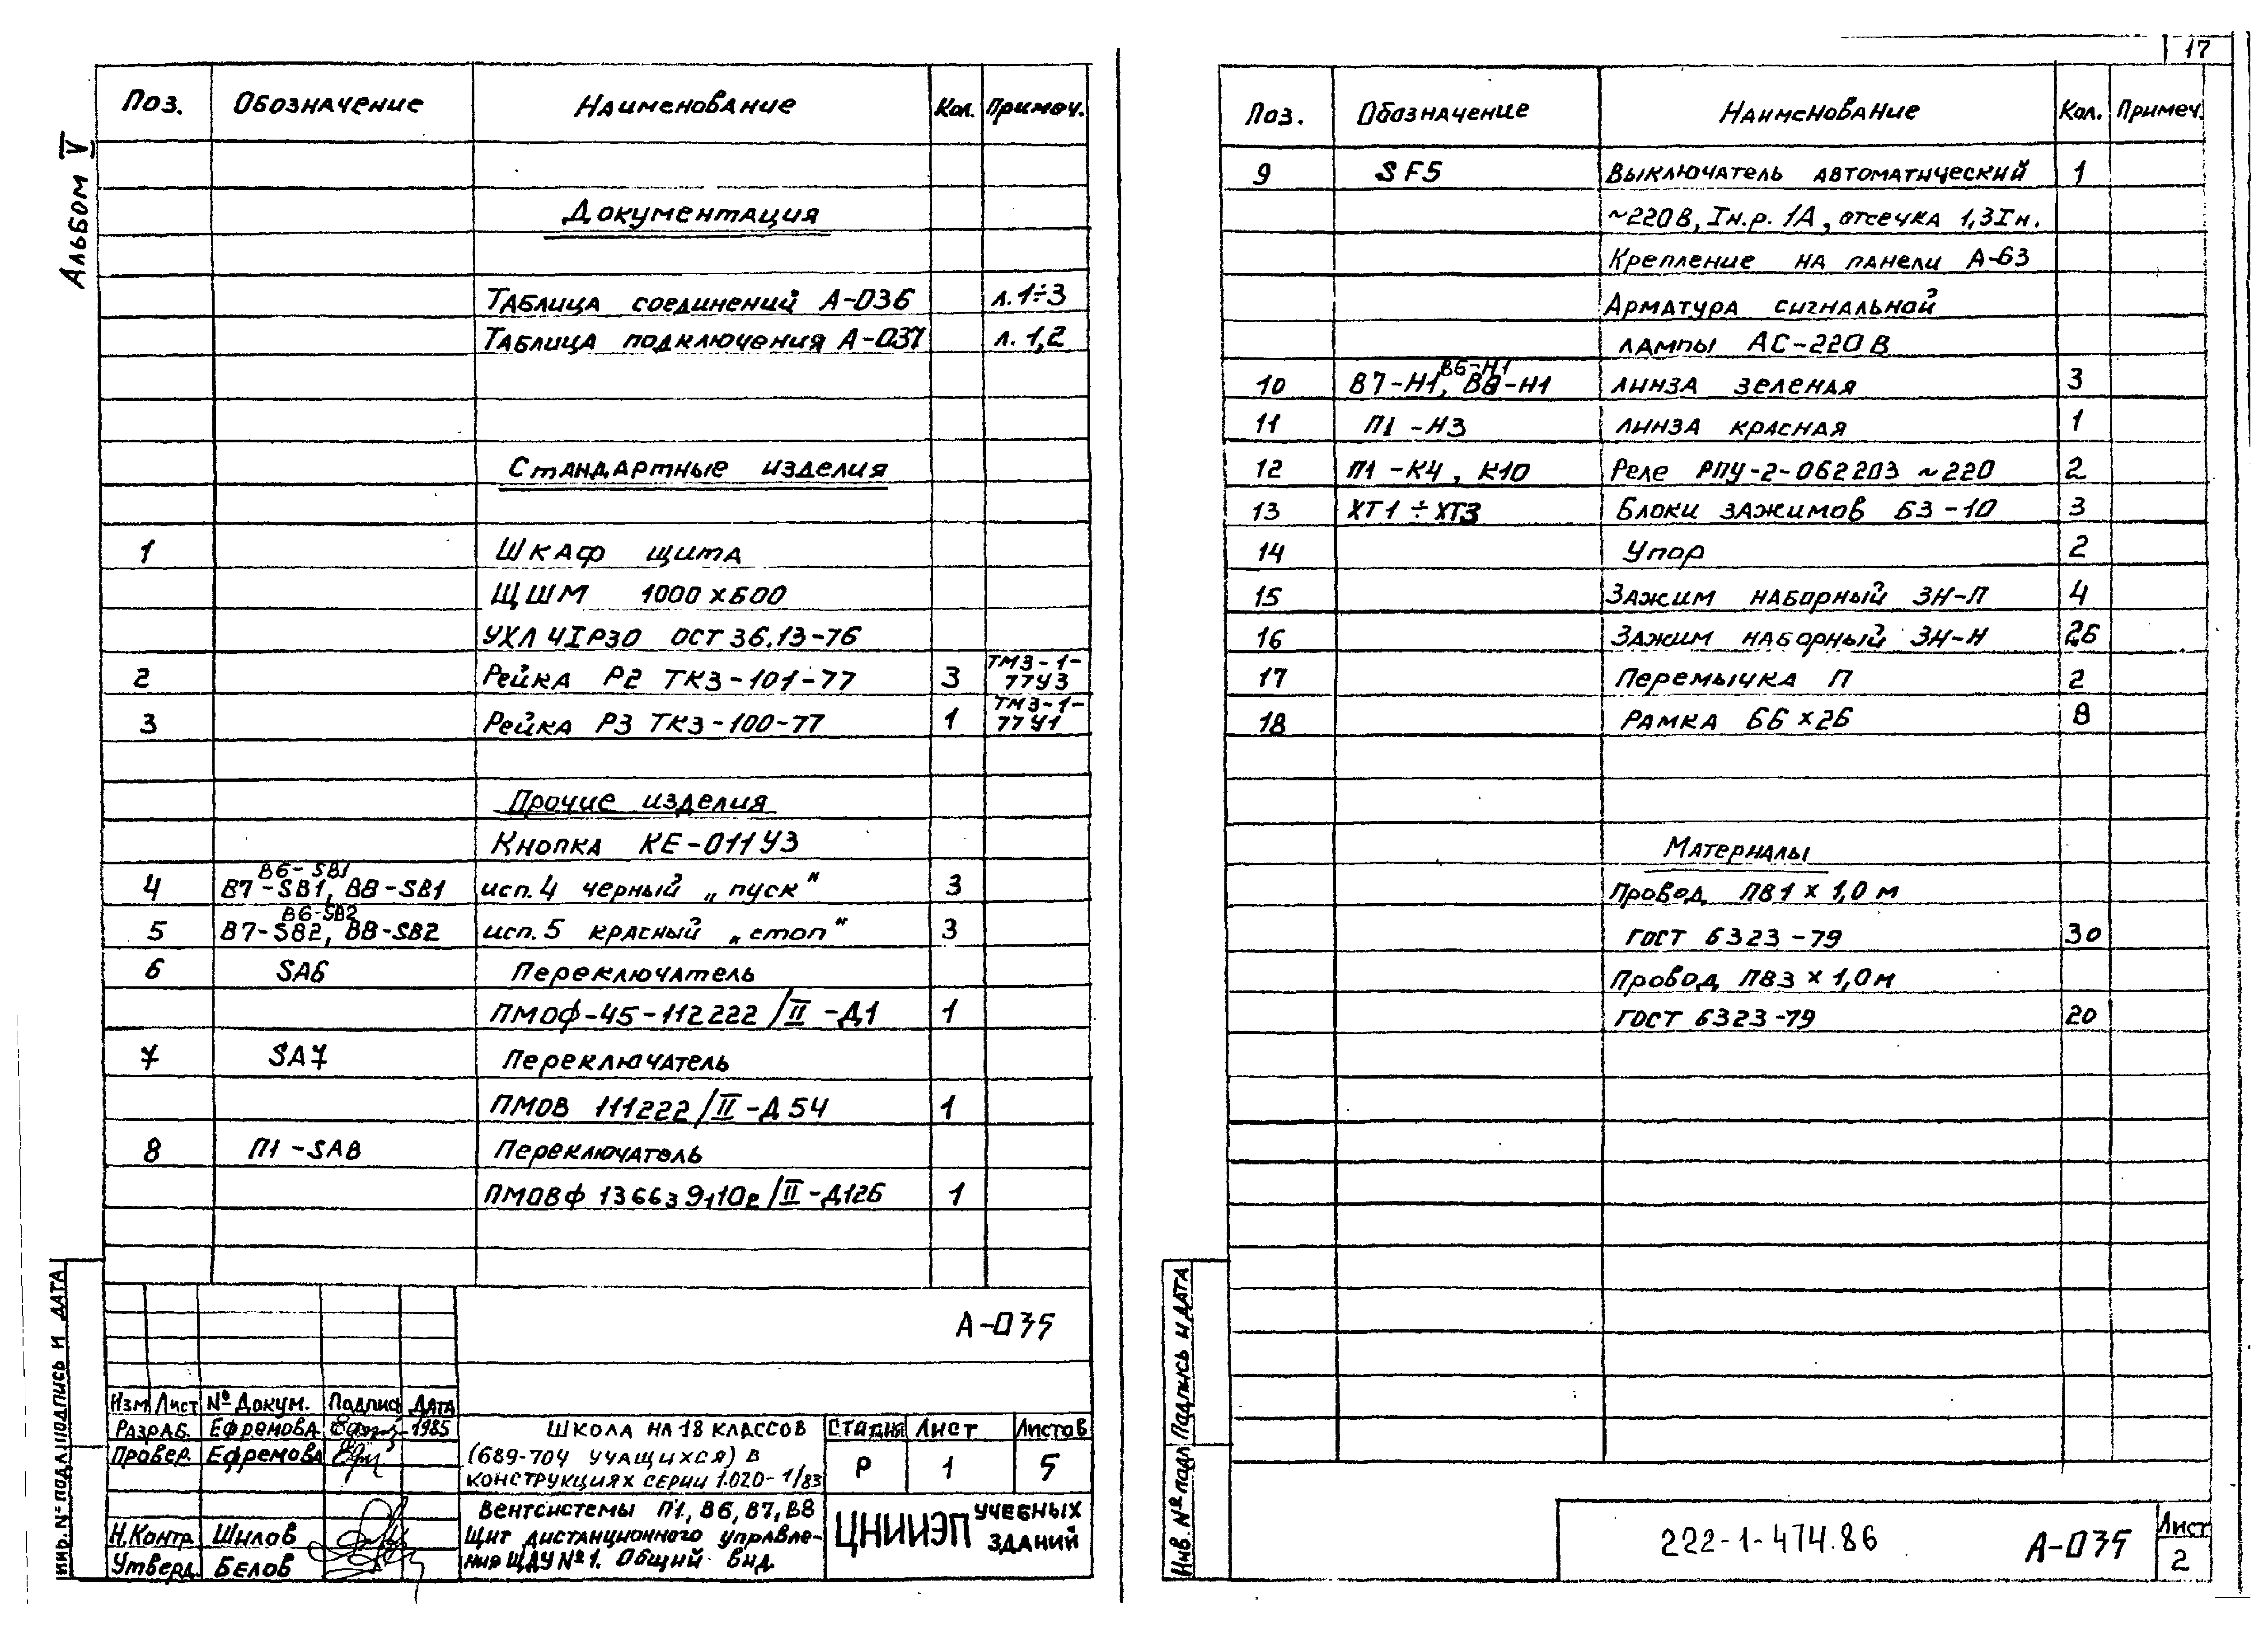 Альбом V
Поз. Обозначение Наименование Кол. Примеч.
Документация
Таблица соединений А-036 л. 1÷3
Таблица подключения А-037 л. 1,2
Стандартные изделия
1 Шкаф щита
ЩШМ 1000х600
УХЛ 4 IР30 ОСТ 36.13-76
2 Рейка Р2 ТК3-101-77 3 ТМ3-1-77У3
3 Рейка Р3 ТК3-100-77 1 ТМ3-1-77У1
Прочие изделия
Кнопка КЕ-011У3
В6-SB1
4 В7-SB1, В8-SB1 исп. 4 черный „пуск" 3
В6-SB2
5 В7-SB2, В8-SB2 исп. 5 красный „стоп" 3
6 SA6 Переключатель
ПМОф-45-112222/II-Д1 1
7 SA7 Переключатель
ПМОВ 111222/II-Д54 1
8 П1-SA8 Переключатель
ПМОВФ 136639,10/II-Д126 1
А-035
Изм Лист № докум. Подпись Дата
Разраб. Ефремова 1985
Провер. Ефремова
Н.контр. Шилов
Утверд. Белов
Школа на 18 классов
(689-704 учащихся) в
конструкциях серии 1.020-1/83
Стадия Лист Листов
Р 1 5
Вентсистемы П1, В6, В7, В8
Щит дистанционного управле-
ния ЩДУ №1. Общий вид.
ЦНИИЭП учебных зданий
Инв. № подл. Подпись и дата
17
Поз. Обозначение Наименование Кол. Примеч.
9 SF5 Выключатель автоматический 1
~220В, Iн.р. 1А, отсечка 1,3Iн.
Крепление на панели А-63
Арматура сигнальной
лампы АС-220В
В6-Н1
10 В7-Н1, В8-Н1 линза зеленая 3
11 П1-Н3 линза красная 1
12 П1-К4, К10 Реле РПУ-2-062203 ~220 2
13 ХТ1÷ХТ3 Блоки зажимов БЗ-10 3
14 Упор 2
15 Зажим наборный ЗН-П 4
16 Зажим наборный ЗН-Н 26
17 Перемычка П 2
18 Рамка 66х26 8
Материалы
Провод ПВ1 х 1,0 м
ГОСТ 6323-79 30
Провод ПВ3 х 1,0 м
ГОСТ 6323-79 20
222-1-474.86 А-035 Лист 2
Инв. № подл Подпись и дата